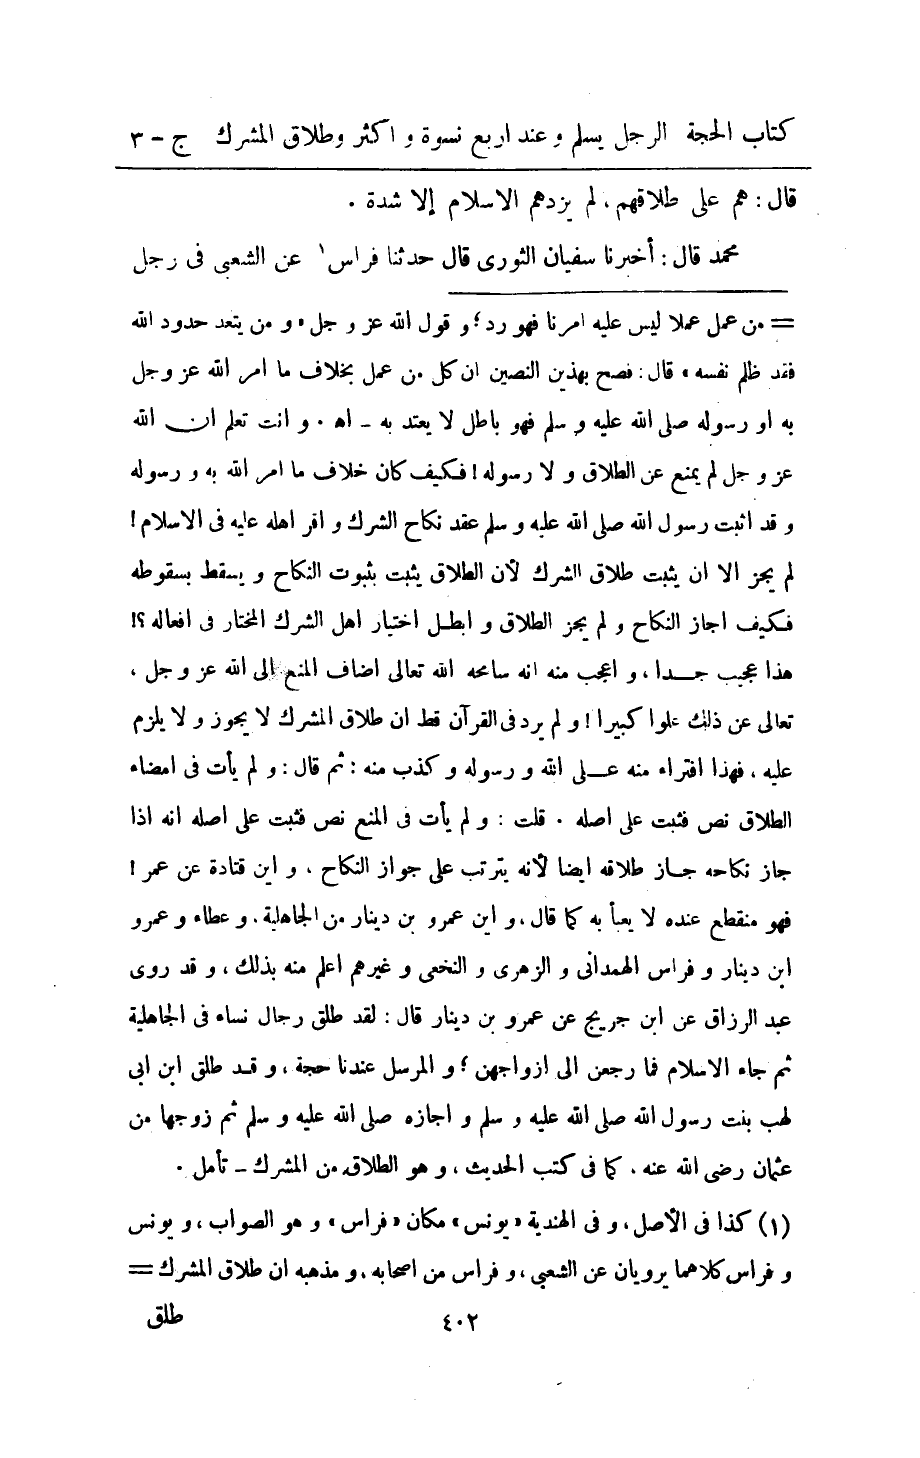 كتاب الحجة الرجل يسلم و عند اربع نسوة و اكثر وطلاق المشرك ج - ٣
قال : هم على طلاقهم ، لم يزدهم الاسلام إلا شدة .
محمد قال : أخبرنا سفيان الثورى قال حدثنا فراس ١ عن الشعبى فى رجل
= من عمل عملا ليس عليه امرنا فهو رد ؛ و قول الله عز و جل « و من يتعد حدود الله
فقد ظلم نفسه » قال : فصح بهذين النصين ان كل من عمل بخلاف ما امر الله عز وجل
به او رسوله صلى الله عليه و سلم فهو باطل لا يعتد به - اه . و انت تعلم ان الله
عز و جل لم يمنع عن الطلاق و لا رسوله ! فكيف كان خلاف ما امر الله به و رسوله
و قد اثبت رسول الله صلى الله عليه و سلم عقد نكاح الشرك و اقر اهله عليه فى الاسلام !
لم يجز الا ان يثبت طلاق الشرك لأن الطلاق يثبت بثبوت النكاح و يسقط بسقوطه
فكيف اجاز النكاح و لم يجز الطلاق و ابطل اختيار اهل الشرك المختار فى افعاله ؟!
هذا عجيب جدا ، و اعجب منه انه سامحه الله تعالى اضاف المنع إلى الله عز و جل ،
تعالى عن ذلك علوا كبيرا ! و لم يرد فى القرآن قط ان طلاق المشرك لا يجوز و لا يلزم
عليه ، فهذا افتراء منه على الله و رسوله و كذب منه ؛ ثم قال : و لم يأت فى امضاء
الطلاق نص فثبت على اصله . قلت : و لم يأت فى المنع نص فثبت على اصله انه اذا
جاز نكاحه جاز طلاقه ايضا لأنه يترتب على جواز النكاح ، و اين قتادة عن عمر !
فهو منقطع عنده لا يعبأ به كما قال ، و اين عمرو بن دينار من الجاهلية ، و عطاء و عمرو
ابن دينار و فراس الهمدانى و الزهرى و النخعى و غيرهم اعلم منه بذلك ، و قد روى
عبد الرزاق عن ابن جريج عن عمرو بن دينار قال : لقد طلق رجال نساء فى الجاهلية
ثم جاء الاسلام فما رجعن الى ازواجهن ؛ و المرسل عندنا حجة ، و قد طلق ابن ابى
لهب بنت رسول الله صلى الله عليه و سلم و اجازه صلى الله عليه و سلم ثم زوجها من
عثمان رضى الله عنه . كما فى كتب الحديث ، و هو الطلاق من المشرك - تأمل .
(١) كذا فى الأصل ، و فى الهندية « يونس » مكان « فراس » و هو الصواب ، و يونس
و فراس كلاهما يرويان عن الشعبى ، و فراس من اصحابه ، و مذهبه ان طلاق المشرك =
٤٠٢
طلق